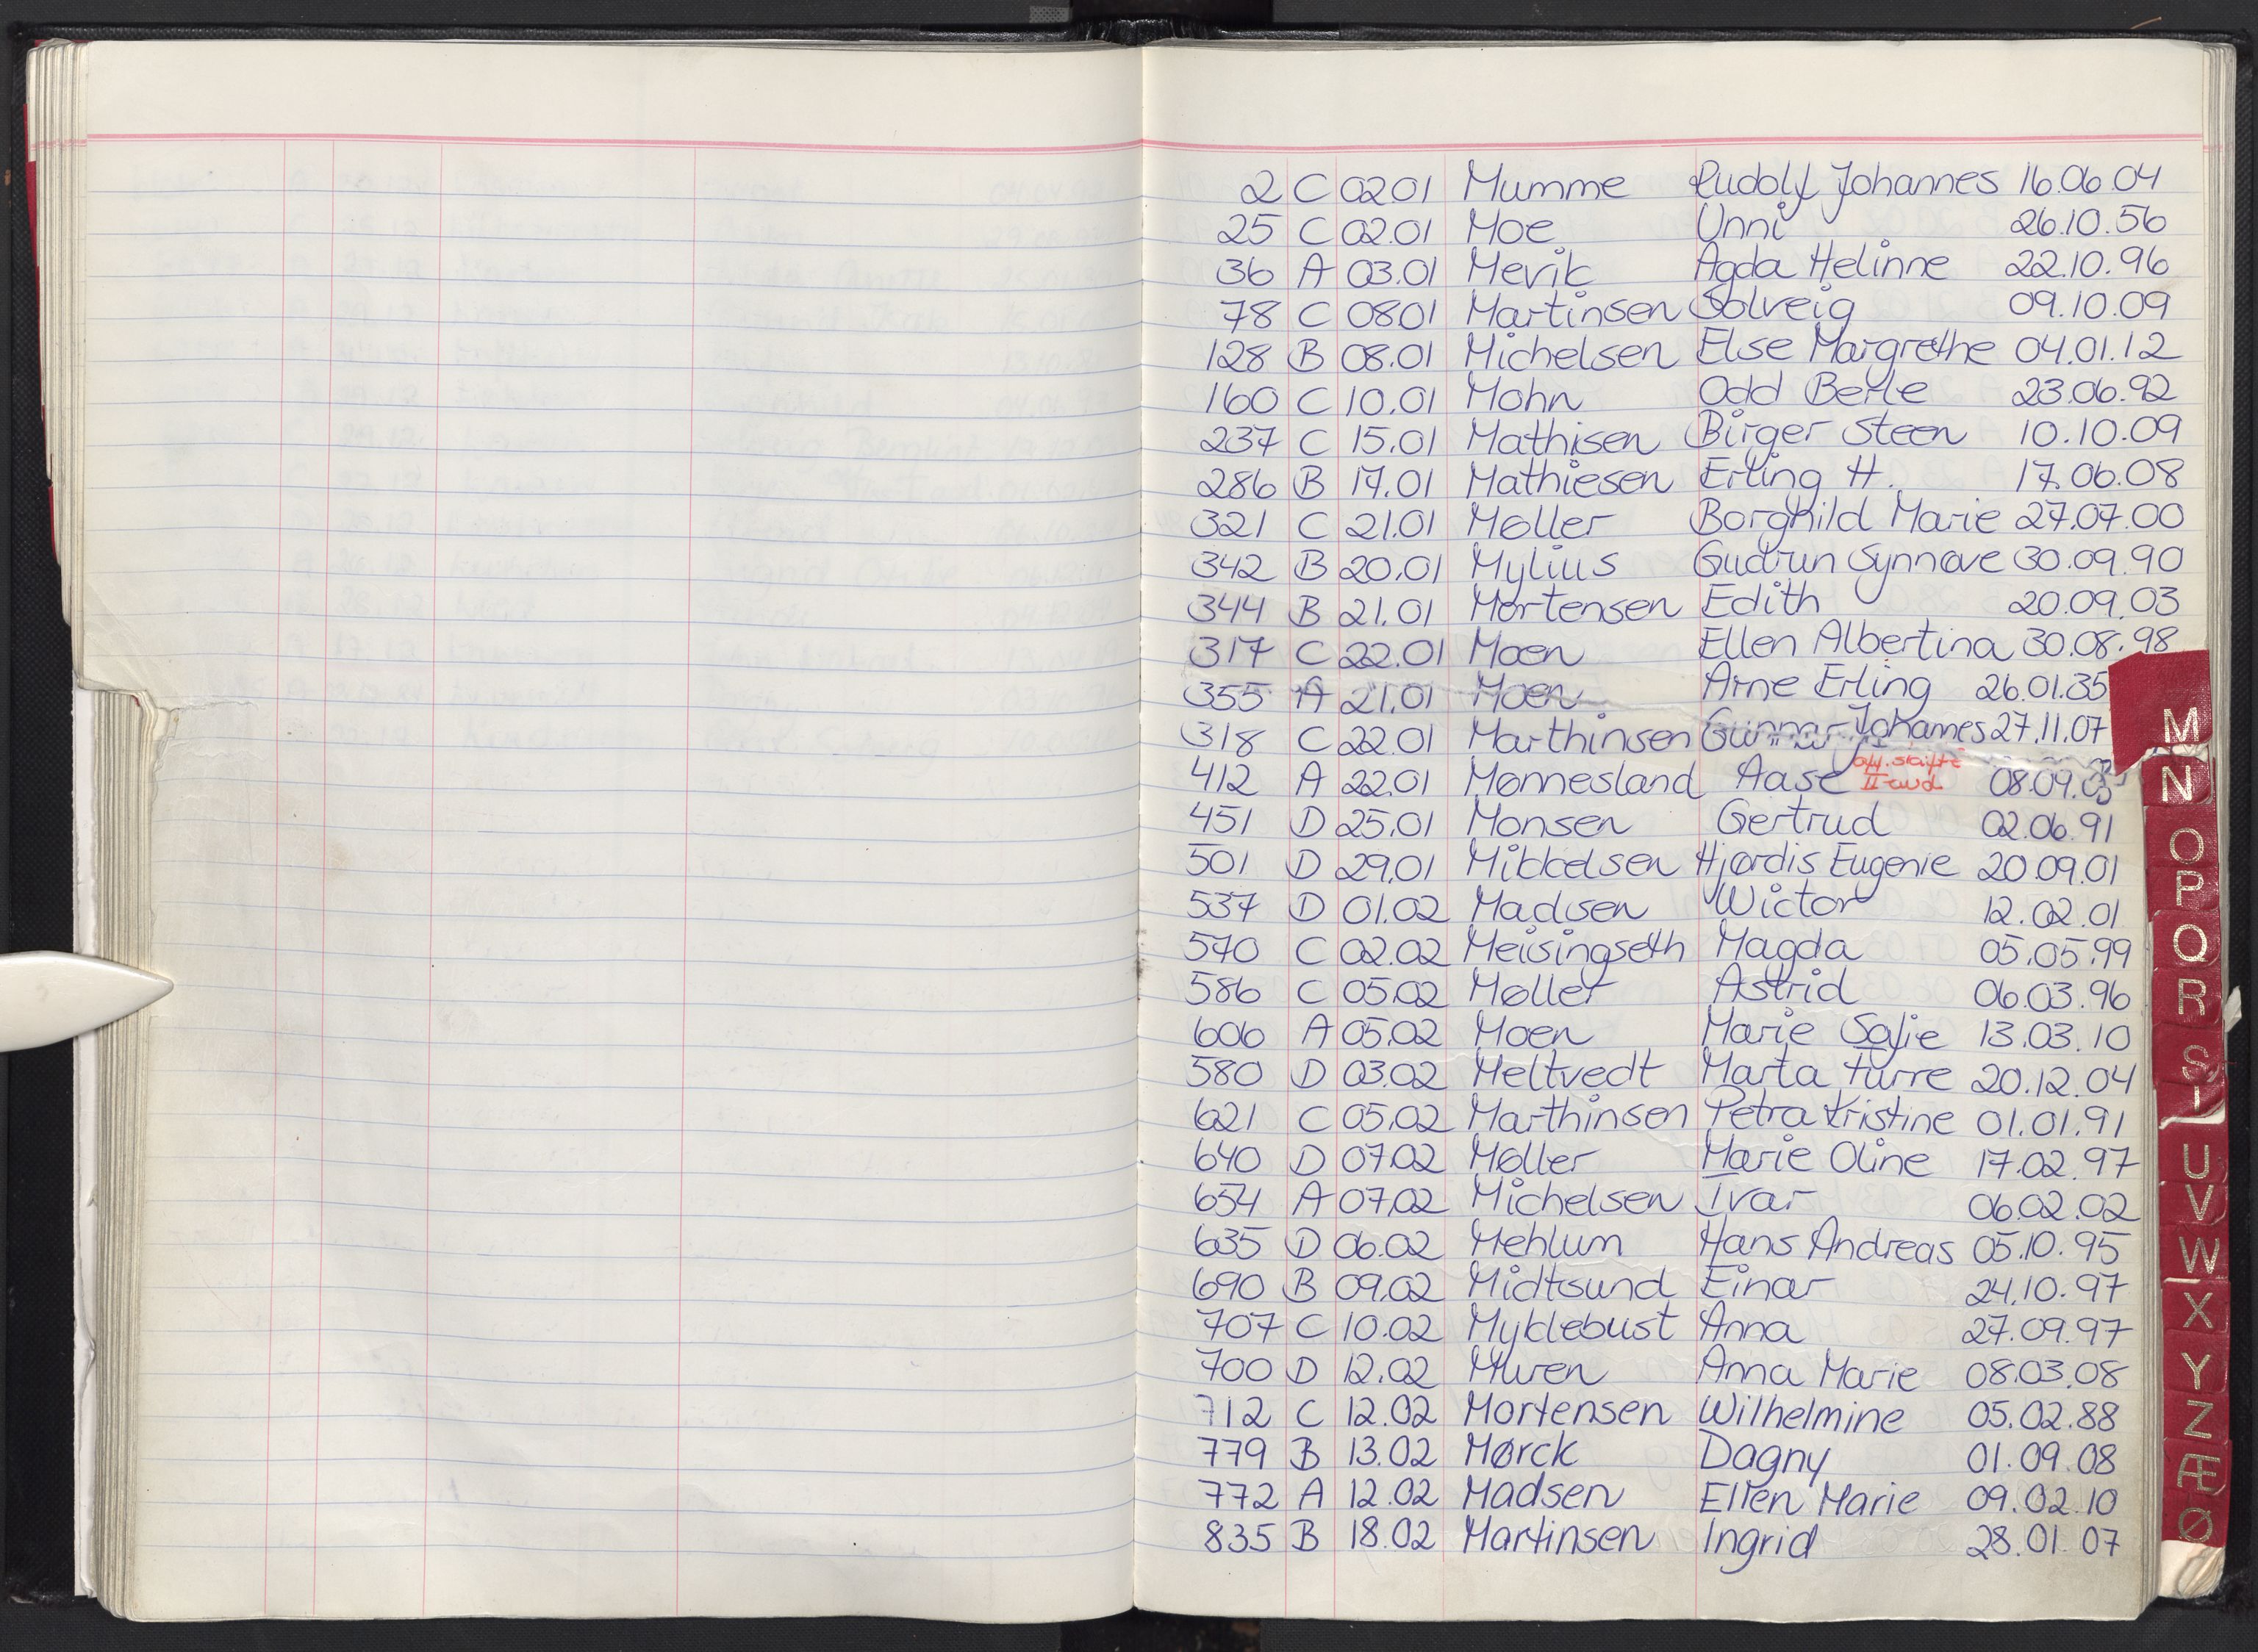 2 C 02.01 Mumme Rudolf Johannes 16.06.04
25 C 02.01 Moe Unni 26.10.56
36 A 03.01 Mevik Agda Helinne 22.10.96
78 C 08.01 Martinsen Solveig 09.10.09
128 B 08.01 Michelsen Else Margrethe 04.01.12
160 C 10.01 Mohn Odd Berle 23.06.92
237 C 15.01 Mathisen Birger Steen 10.10.09
286 B 17.01 Mathiesen Erling H. 17.06.08
321 C 21.01 Møller Borghild Marie 27.07.00
342 B 20.01 Mylius Gudrun Synnøve 30.09.90
344 B 21.01 Mortensen Edith 20.09.03
317 C 22.01 Moen Ellen Albertina 30.08.98
355 A 21.01 Moen Arne Erling 26.01.35
318 C 22.01 Marthinsen Gunnar Johannes 27.11.07
412 A 22.01 Mønnesland Aase off. skifte 08.09.03
II avd
451 D 25.01 Monsen Gertrud 02.06.91
501 D 29.01 Mikkelsen Hjørdis Eugenie 20.09.01
537 D 01.02 Madsen Wictor 12.02.01
570 C 02.02 Meisingseth Magda 05.05.99
586 C 05.02 Møller Astrid 06.03.96
606 A 05.02 Moen Marie Sofie 13.03.10
580 D 03.02 Meltvedt Marta Turre 20.12.04
621 C 05.02 Marthinsen Petra Kristine 01.01.91
640 D 07.02 Møller Marie Oline 17.02.97
654 A 07.02 Michelsen Ivar 06.02.02
635 D 06.02 Mehlum Hans Andreas 05.10.95
690 B 09.02 Midtsund Einar 24.10.97
707 C 10.02 Myklebust Anna 27.09.97
700 D 12.02 Muren Anna Marie 08.03.08
712 C 12.02 Mortensen Wilhelmine 05.02.88
779 B 13.02 Mørck Dagny 01.09.08
772 A 12.02 Madsen Ellen Marie 09.02.10
835 B 18.02 Martinsen Ingrid 28.01.07
M
N
O
P
Q
R
S
T
U
V
W
X
Y
Z
Æ
Ø